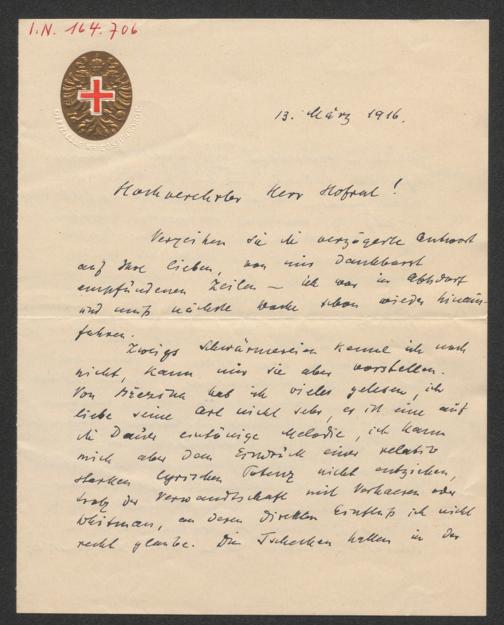 I.N. 164.706
13. März 1916.
Hochverehrter Herr Hofrat!
Verzeihen Sie die verzögerte Antwort
auf Ihre lieben, von mir dankbarst
empfundenen Zeilen — ich war in
und muß nächste Woche schon wieder hinun-
fahren.
Zweigs Schwärmereien kenne ich noch
nicht, kann mir sie aber vorstellen.
Von Březina hab ich vieles gelesen, ich
liebe seine Art nicht sehr, es ist eine auf
die Dauer eintönige Melodie, ich kann
mich aber dem Eindruck einer relativ
starken lyrischen Potenz nicht entziehen,
trotz der Verwandtschaft mit Verhaeren oder
Whitman, an deren direkten Einfluß ich nicht
recht glaube. Die Tschechen hatten in der